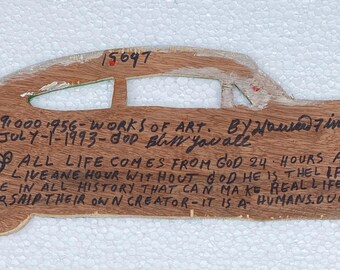 15697
9.000.956 - WORKS OF ART. BY
JULY-1-1993-GOD
ALL LIFE COMES FROM GOD 24. HOURS A
LIVE ANE HOUR WITHOUT GOD HE IS THE LIF
E IN ALL HISTORY THAT CAN MAKE REAL LIFE
RSAID THEIR OWN CREATOR-IT IS A HUMANS.